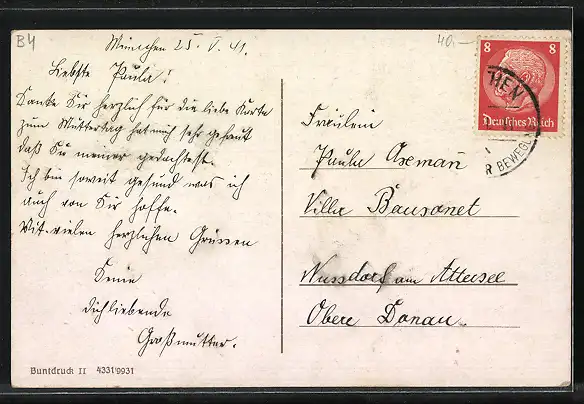 B4
40.-
München 25. V. 41.
Liebste Paula!
Danke Dir herzlich für die liebe Karte
zum Muttertag hat mich sehr gefreut
daß Du meiner gedachtest.
Ich bin soweit gesund was ich
auch von Dir hoffe.
Mit vielen herzlichen Grüssen
Deine
dichliebende
Großmutter.
Buntdruck II 4331/9931
8 8
Deutsches Reich
HEN
R BEWEGU
Fräulein
Paula Axemann
Villa Bausonet
Nussdorf am Attersee
Obere Donau.